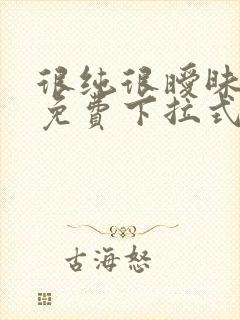 很纯很暧昧
免费下拉式
古海怒